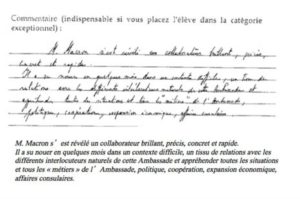 Commentaire (indispensable si vous placez l'élève dans la catégorie
exceptionnel) :
M. Macron s'est révélé un collaborateur brillant, précis,
concret et rapide.
Il a su nouer en quelques mois dans un contexte difficile, un tissu de
relations avec les différents interlocuteurs naturels de cette Ambassade et
appréhender toutes les situations et tous les "métiers" de l'Ambassade,
politique, coopération, expansion économique, affaires consulaires.
M. Macron s' est révélé un collaborateur brillant, précis, concret et rapide.
Il a su nouer en quelques mois dans un contexte difficile, un tissu de relations avec les
différents interlocuteurs naturels de cette Ambassade et appréhender toutes les situations
et tous les « métiers » de l' Ambassade, politique, coopération, expansion économique,
affaires consulaires.